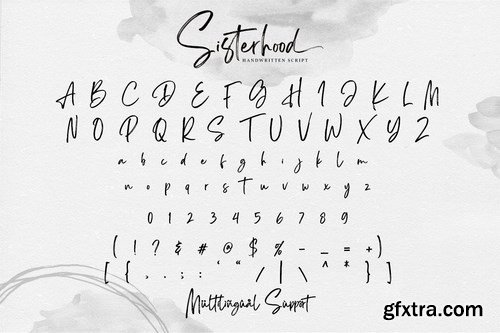 Sisterhood
HANDWRITTEN SCRIPT
A B C D E F G H I J K L M
N O P Q R S T U V W X Y Z
a b c d e f g h i j k l m
n o p q r s t u v w x y z
0 1 2 3 4 5 6 7 8 9
( ! ? & # @ $ % - _ = + )
[ { , . ; : ' “ ” / | \ ^ * } ]
Multilingual Support
gfxtra.com